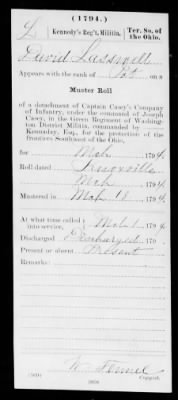 (1794.)
L | Kennedy's Reg't, Militia, | Ter. So. of the Ohio.
David
Appears with the rank of Pvt. on a
Muster Roll
of a detachment of Captain Casey's Company
of Infantry, under the command of Joseph
Casey, in the Green Regiment of Washing-
ton District Militia, commanded by
Kennaday, Esq., for the protection of the
frontiers Southwest of the Ohio,
for Mch, 1794.
Roll dated Knoxville
Mch, 1794.
Mustered in Mch 18, 1794.
At what time called into service, Mch 1, 1794.
Discharged Discharged, 179 .
Present or absent Present
Remarks:
W.
(569) Copyist.